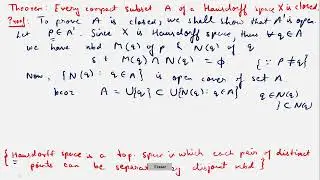 Theorem: Every compact subset A of a Hausdorff space X is closed.
Proof: To prove A is closed, we shall show that A' is open.
Let p ∈ A'. Since X is Hausdorff space, then ∀ q ∈ A
we have nbd M(q) of p & N(q) of q
s.t M(q) ∩ N(q) = ϕ {∵ p ≠ q}
Now, {N(q) : q ∈ A} is open cover of set A
bcoz A = ∪{q} ⊂ ∪{N(q) : q ∈ A} q ∈ N(q)
} ⊂ N(q)
{ Hausdorff space is a top. space in which each pair of distinct
points can be separated by disjoint nbd }